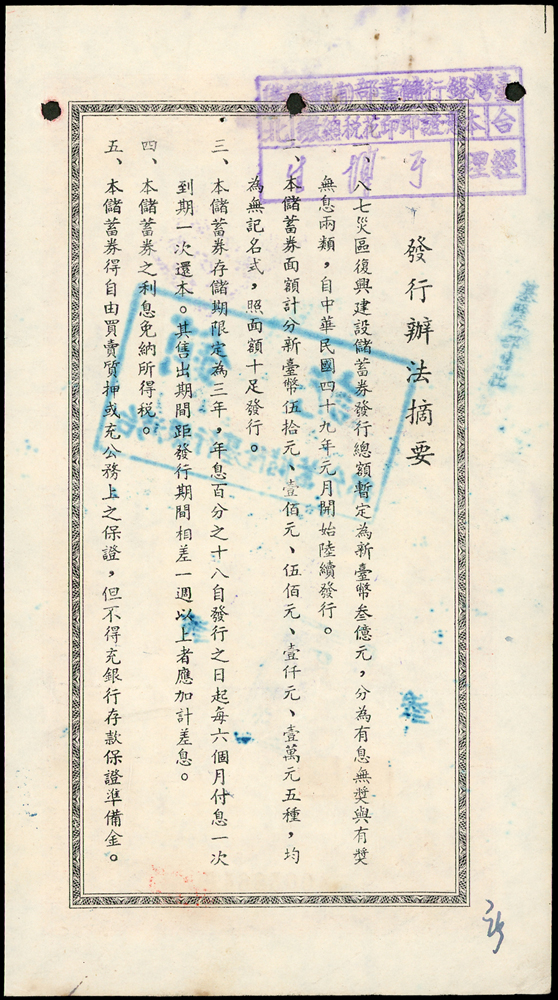 發行辦法摘要
一、八七災區復興建設儲蓄券發行總額暫定為新臺幣叁億元，分為有息無獎與有獎
無息兩類，自中華民國四十九年元月開始陸續發行。
二、本儲蓄券面額計分新臺幣伍拾元、壹佰元、伍佰元、壹仟元、壹萬元五種，均
為無記名式，照面額十足發行。
三、本儲蓄券存儲期限定為三年，年息百分之十八自發行之日起每六個月付息一次
到期一次還本。其售出期間距發行期間相差一週以上者應加計差息。
四、本儲蓄券之利息免納所得稅。
五、本儲蓄券得自由買賣質押或充公務上之保證，但不得充銀行存款保證準備金。
臺灣銀行儲蓄部
印花稅總繳
經理